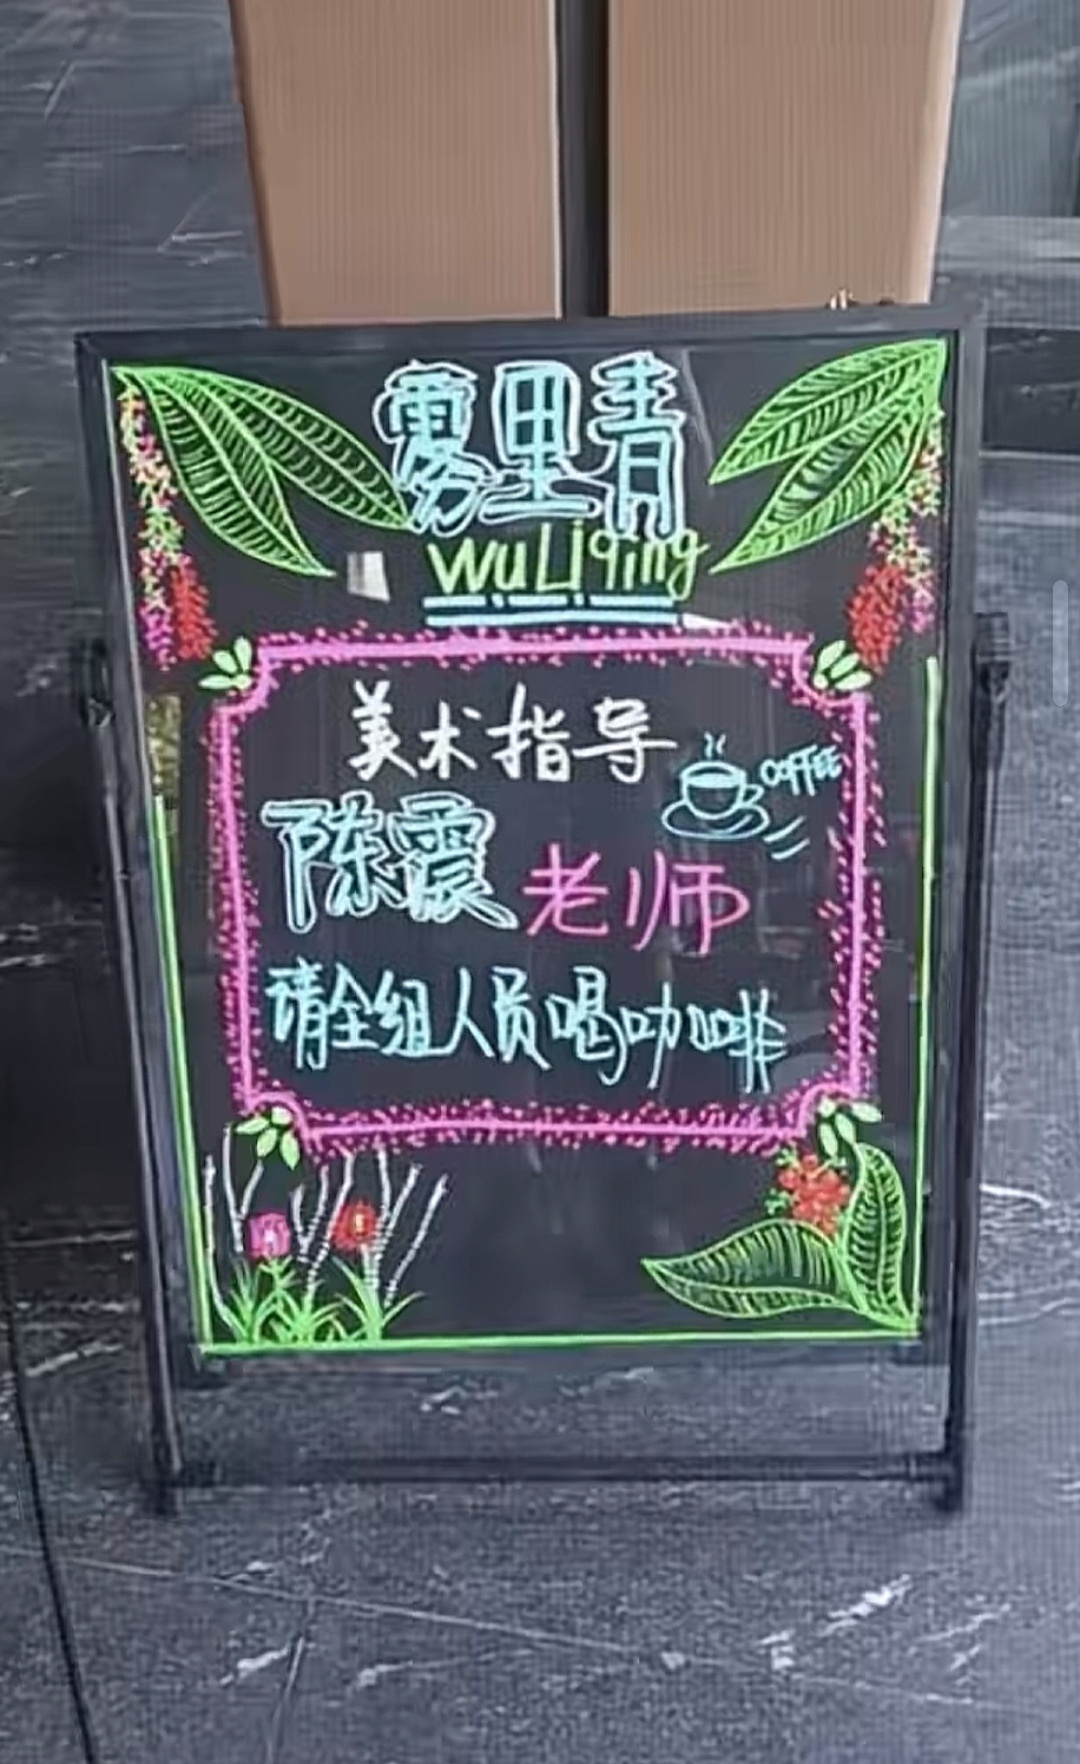 雾里青
WuLiqing
美术指导
COFFEE
陈震老师
请全组人员喝咖啡